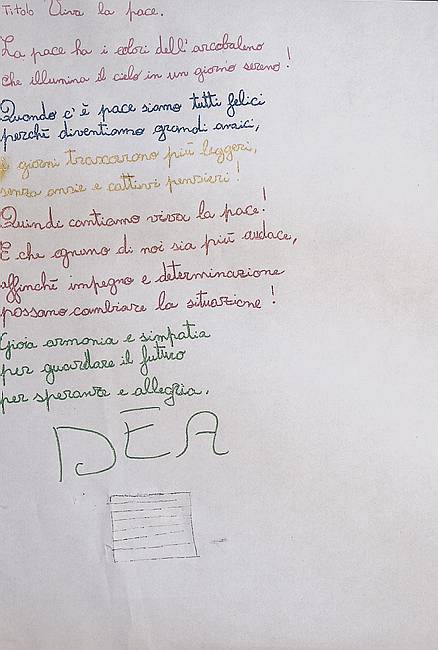 Titolo Viva la pace.
La pace ha i colori dell'arcobaleno
che illumina il cielo in un giorno sereno!
Quando c'è pace siamo tutti felici
perché diventiamo grandi amici,
i giorni trascorrono più leggeri,
senza ansie e cattivi pensieri!
Quindi cantiamo viva la pace!
E che ognuno di noi sia più audace,
affinché impegno e determinazione
possano cambiare la situazione!
Gioia armonia e simpatia
per guardare il futuro
per speranza e allegria.
DEA